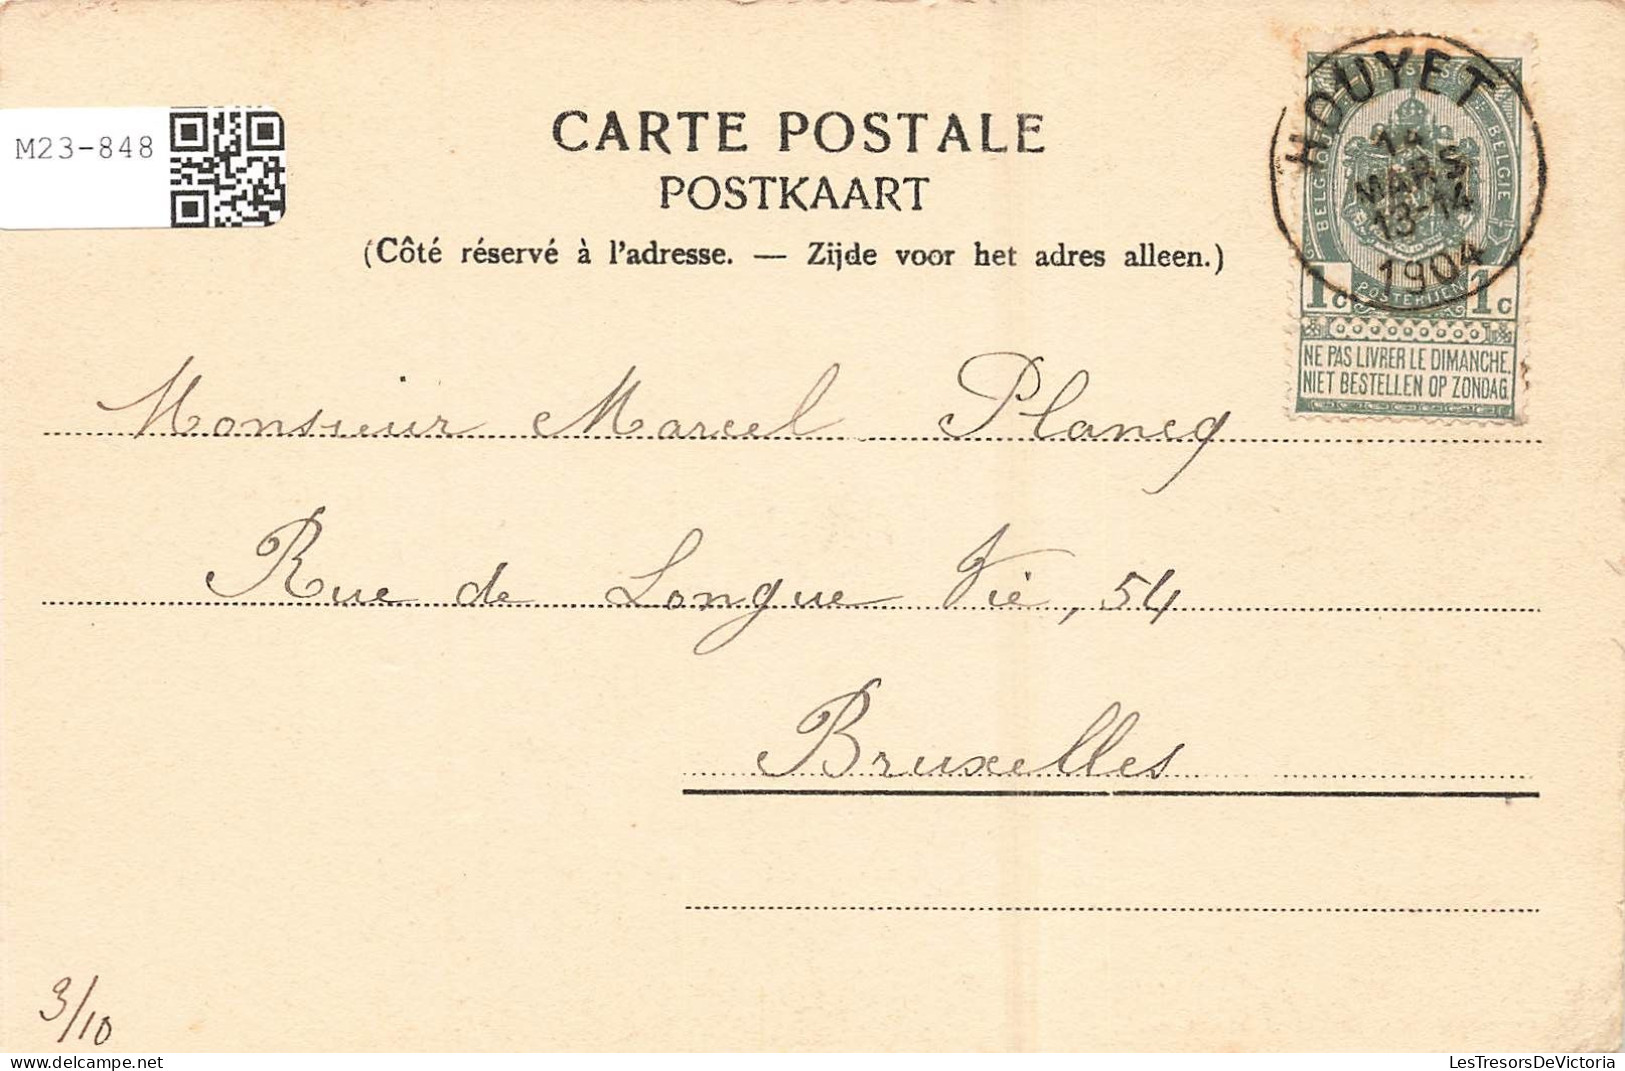 HOUYET
14
MARS
13-14
1904
BELGIQUE POSTES BELGIE
POSTERIJEN
1c 1c
NE PAS LIVRER LE DIMANCHE.
NIET BESTELLEN OP ZONDAG.
M23-848
CARTE POSTALE
POSTKAART
(Côté réservé à l'adresse. — Zijde voor het adres alleen.)
Monsieur Marcel Plancq
Rue de Longue Vie, 54
Bruxelles
3/10
LesTresorsDeVictoria